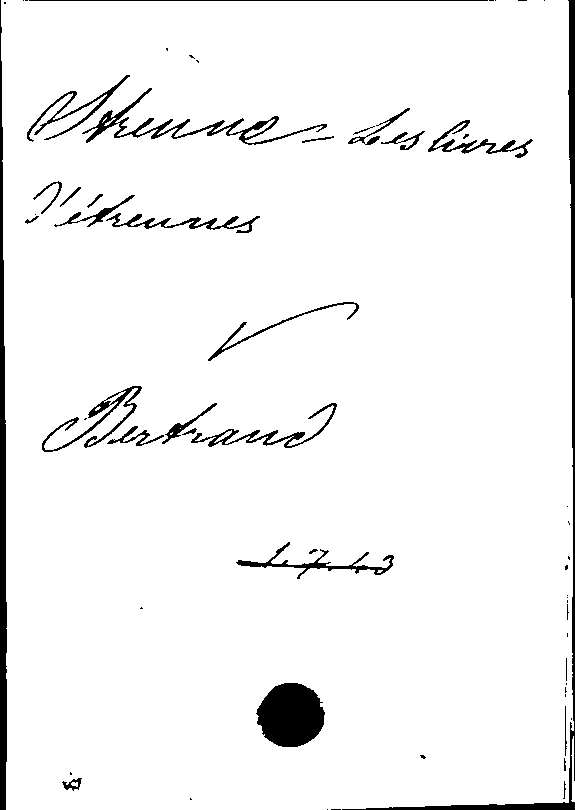 Strenne - Les livres
d'étrennes
V
Bertrand